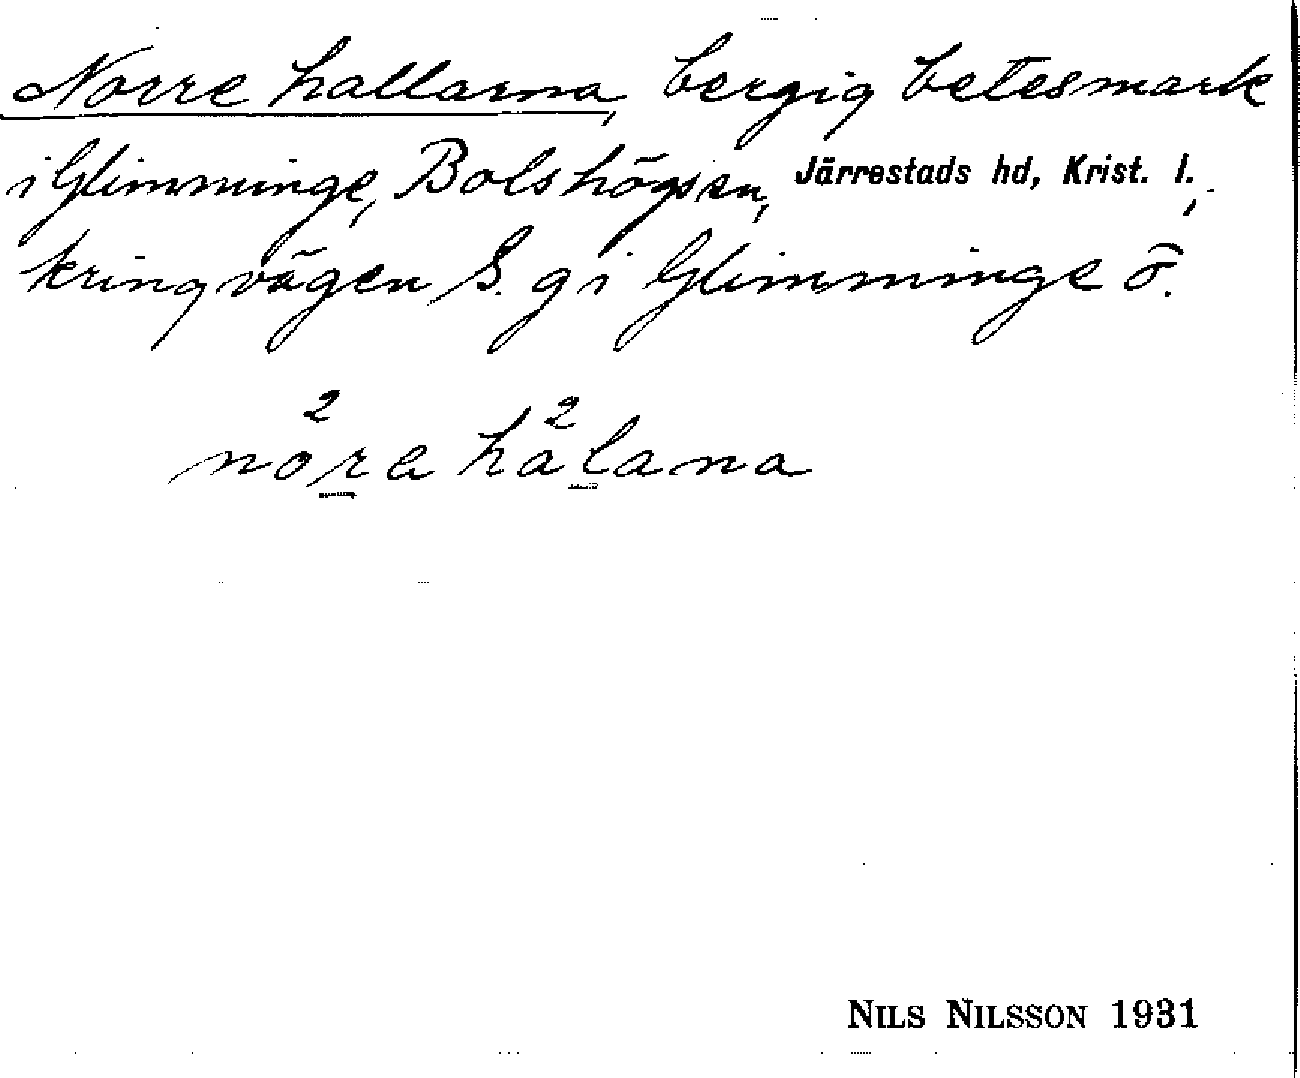 Norre hallarna, bergig betesmark
i Glimminge, Bolshögs sn, Järrestads hd, Krist. l.,
kring vägen S. g i Glimminge ö.
2 2
nöra hålana
NILS NILSSON 1931